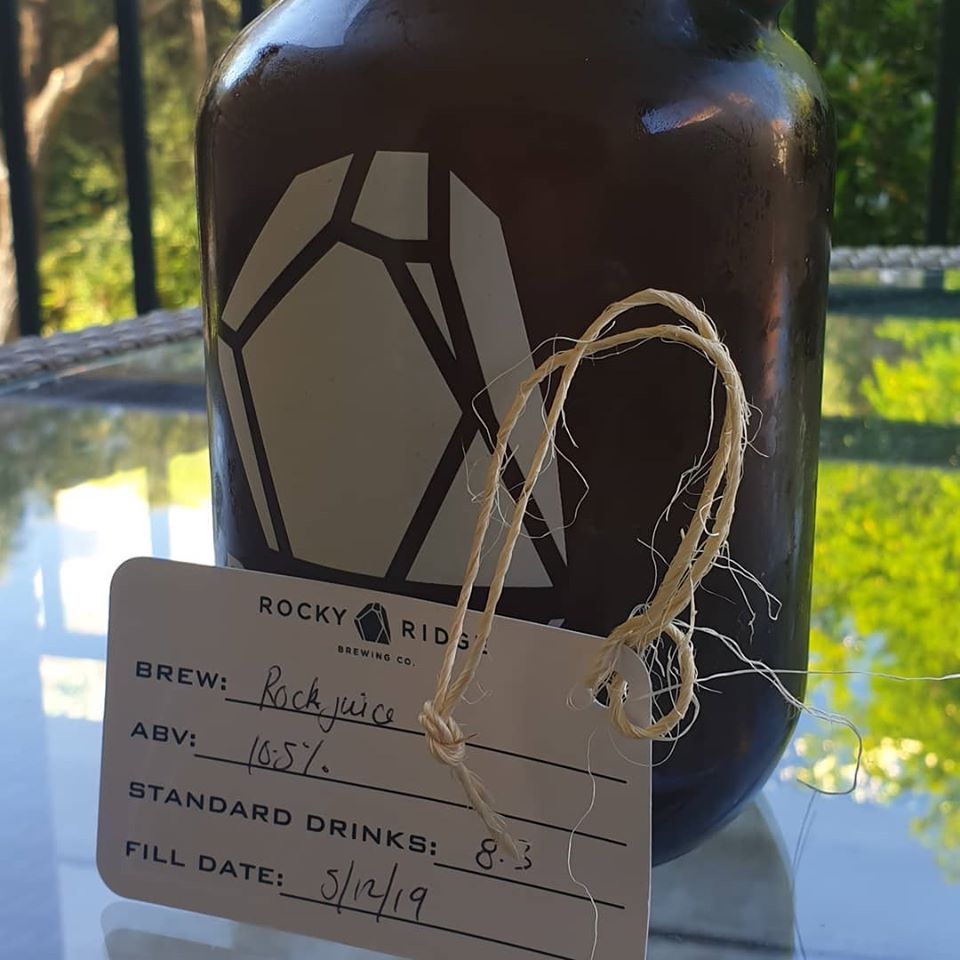 ROCKY RIDGE
BREWING CO.
BREW: Rock juice
ABV: 10.5%.
STANDARD DRINKS: 8.3
FILL DATE: 5/12/19